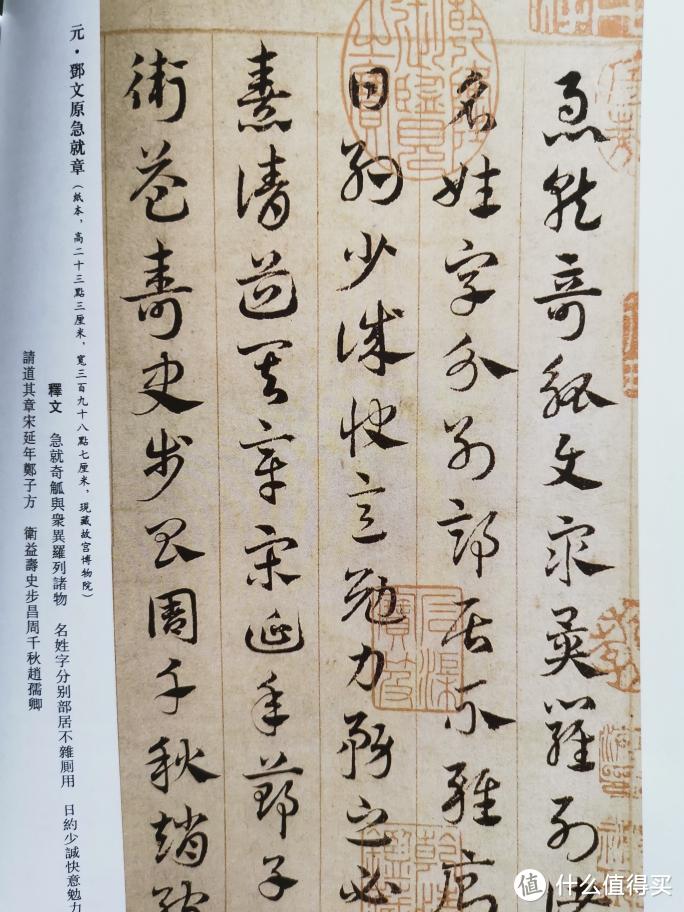 急就奇觚與衆異羅列諸
名姓字分別部居不雜廁
日約少誠快意勉力務之必
憙請道其章宋延年鄭子
衛益壽史步昌周千秋趙孺
元·鄧文原急就章（紙本，高二十三點三厘米，寬三百九十八點七厘米，現藏故宮博物院）
釋文 急就奇觚與衆異羅列諸物 名姓字分别部居不雜厠用 日約少誠快意勉力
請道其章宋延年鄭子方 衛益壽史步昌周千秋趙孺卿
值 什么值得买